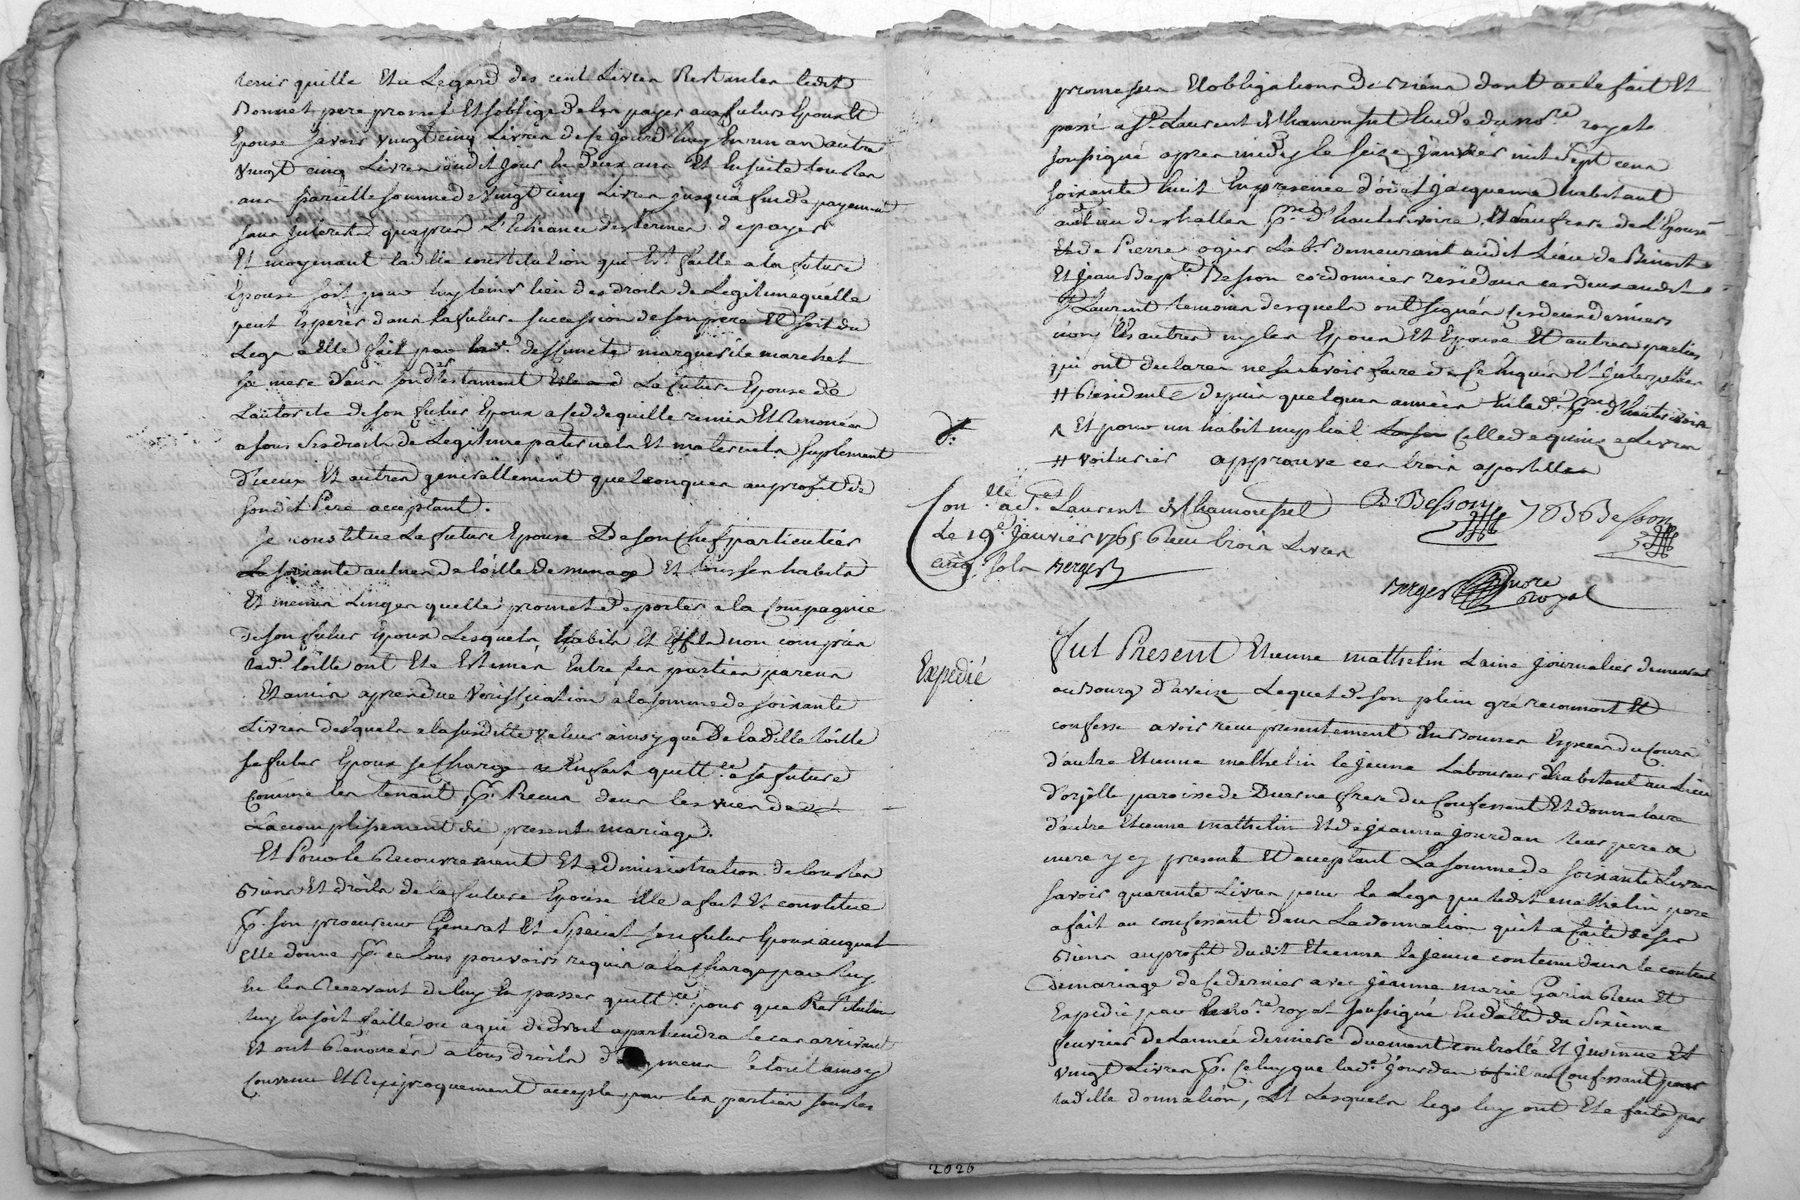 tenir quille Et a Legard des cent Livres Restantes ledit
Bonnet pere promet Et soblige de les payer aux futurs Epoux Et
Epouse savoir vingt cinq Livres de ce jourdhuy En un an autre
vingt cinq Livres audit jour En deux ans Et En suite tous les
ans pareille somme de vingt cinq Livres jusqua fin de payement
sans interest quapres L'Echeance des termes de payer
Et moyenant ladte constitution qui Est faitte a la future
Epouse soit pour luy tenir lieu des droits de Legitime quelle
peut Esperer dans la future succession de son pere Et soit du
Legs a Elle fait par deffuncte marguerite marchet
sa mere dans son testament La future Epouse de
L'autorite de son futur Epoux a cedde quitte remis Et Renoncer
a tous ses droits de Legitime paternels Et maternels suplement
d'iceux Et autres generallement quelconques au profit de
sondit Pere acceptant.
Se constitue La future Epouse De son Chef particulier
soixante aulnes de toille de menage Et tous ses habits
Et menus Linges quelle promet de porter a la Compagnie
de son futur Epoux Lesquels habits Et Effets non compris
lade toille ont Ete Estimes Entre les parties parens
Et amis apres due veriffication a la somme de soixante
Livres desquels a la susditte valeur ainsy que De laditte toille
le futur Epoux se Charge Et En fait quittce a sa future
Comme les tenant pr. Recus dans les vues de
Lacomplissement du present mariage.
Et Pour le Recouvrement Et administration de tous les
Biens Et droits de la future Epouse Elle a fait Et constitue
pr. son procureur General Et special son futur Epoux auquel
elle donne pr. ce tous pouvoirs requis a la Charge par luy
En les Recevant de luy En passer quittce pour que Restitution
luy En soit faitte ou a qui de droit apartiendra le cas arrivant
Et ont Renoncer a tous droits d' le tout ainsy
Convenu Et Reciproquement accepte par les parties sous les
promesses Et obligations de Biens dont acte fait Et
passé a St. Laurent de Chamousset Etude du nore royal
soussigné apres midy le seize Janvier mil sept cens
soixante huit En presence d'
au lieu des halles psse d'hauterivoire, Et de Pierre ogier Labr demeurant audit Lieu de Benoit
Et Jean Bapte Besson cordonnier residans ces deux audit
St Laurent temoins desquels ont signés ces deux derniers
non les autres ny les Epoux Et Epouse Et autres parties
qui ont declares ne scavoir faire de ce Enquis Et interpelles
# Residente depuis quelques années En lade. psse d'hauterivoire
^ Et pour un habit nuptial celle de quinze Livres
# voiturier approuve ces trois apostilles
Conllé ad. St Laurent de Chamousset B. Besson JB Besson
Le 19e Janvier 1768 Reçu trois Livres
cinq sols Berger
Berger nore royal
Expedié
Fut Present Etienne mathelin Laine Journalier demeurant
au Bourg d'aveize Lequel de son plein gré reconnoit Et
confesse avoir recu presentement En Bonnes Especes du Cours
d'autre Etienne mathelin le jeune Laboureur habitant au Lieu
d'orjolle paroisse de Duerne frere du Confessant Et donnataire
d'autre Etienne mathelin Et de jeanne jourdan leur pere Et
mere y cy present Et acceptant La somme de soixante Livres
savoir quarente Livres pour le Legs que ledit mathelin pere
a fait au confessant dans La donnation quil a faite de ses
Biens au profit dudit Etienne le jeune contenue dans le contrat
de mariage de ce dernier avec jeanne marie Garin Recu Et
Expedié par Le nore royal soussigné En datte du Sixieme
fevrier de Lannée derniere duement controllé Et insinué Et
vingt Livres pr. Celuy que lade. jourdan a fait au Confessant par
laditte donnation, Et Lesquels legs luy ont Ete faits par
2026